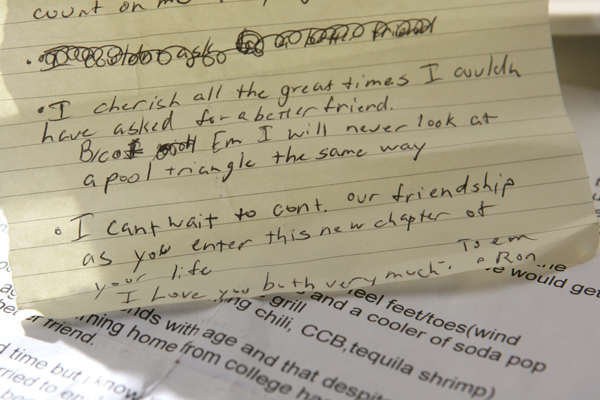 count on me
• I
• I cherish all the great times I couldn
have asked for a better friend.
B/c of Em I will never look at
a pool triangle the same way
• I cant wait to cont. our friendship
as you enter this new chapter of
your life
I Love you both very much. To em
& Ron
eel feet/toes(wind
e would get
grill
and a cooler of soda pop
ng chili, CCB,tequila shrimp)
nds with age and that despit
r friend.
rning home from college ha
d time but i know
ried to en